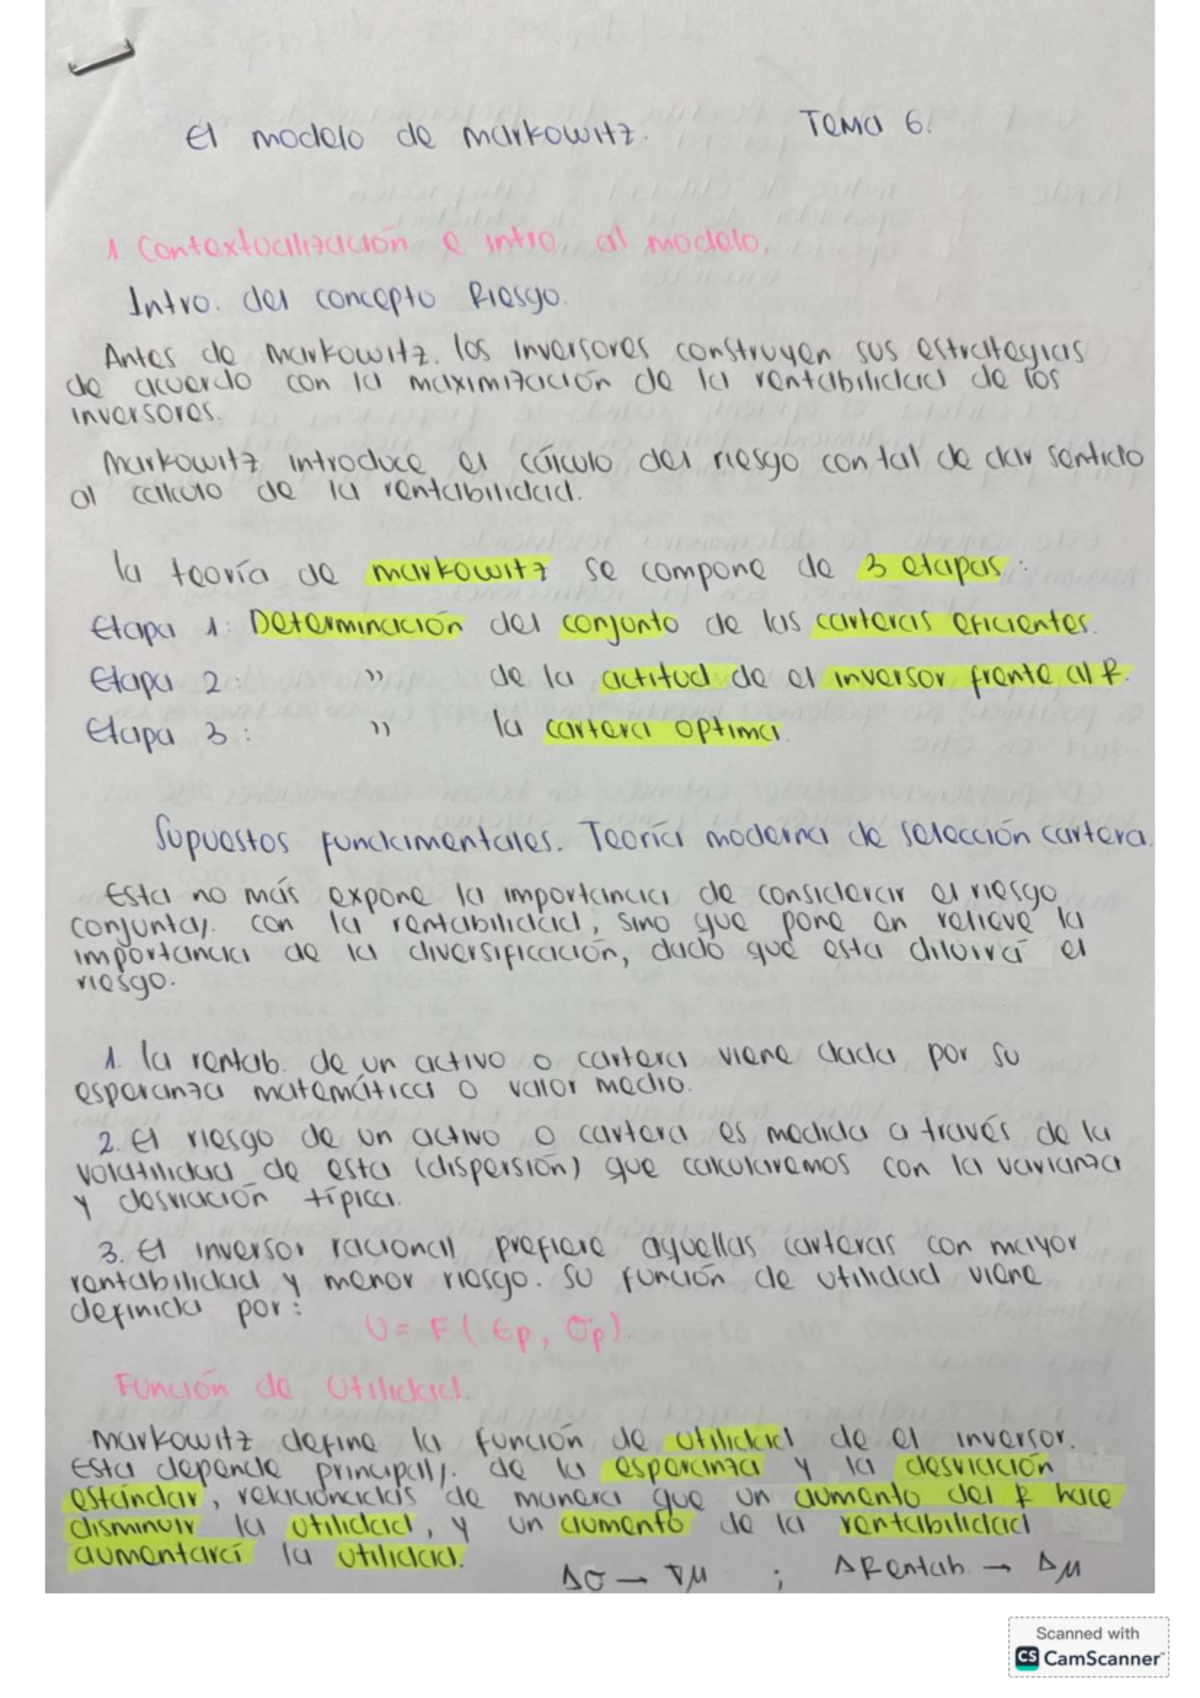 El modelo de Markowitz. Tema 6.
1. Contextualización e intro. al modelo.
Intro. del concepto Riesgo.
Antes de Markowitz. los inversores construyen sus estrategias
de acuerdo con la maximización de la rentabilidad de los
inversores.
Markowitz introduce el cálculo del riesgo con tal de dar sentido
al cálculo de la rentabilidad.
la teoría de Markowitz se compone de 3 etapas:
Etapa 1: Determinación del conjunto de las carteras eficientes.
Etapa 2: " de la actitud de el inversor frente al R.
Etapa 3: " la cartera optima.
Supuestos fundamentales. Teoría moderna de selección cartera.
Esta no más expone la importancia de considerar el riesgo
conjuntay. con la rentabilidad, sino que pone en relieve la
importancia de la diversificación, dado que esta diluirá el
riesgo.
1. la rentab. de un activo o cartera viene dada por su
esperanza matemática o valor medio.
2. El riesgo de un activo o cartera es medida a través de la
volatilidad de esta (dispersión) que calcularemos con la varianza
y desviación típica.
3. El inversor racional prefiere aquellas carteras con mayor
rentabilidad y menor riesgo. Su función de utilidad viene
definida por:
U = F (Ep, σp).
Función de Utilidad.
Markowitz define la función de utilidad de el inversor.
Esta depende principally. de la esperanza y la desviación
estándar, relacionadas de manera que un aumento del R hace
disminuir la utilidad, y un aumento de la rentabilidad
aumentará la utilidad.
Δσ → ∇μ ; Δ Rentab. → Δμ
Scanned with
CS CamScanner